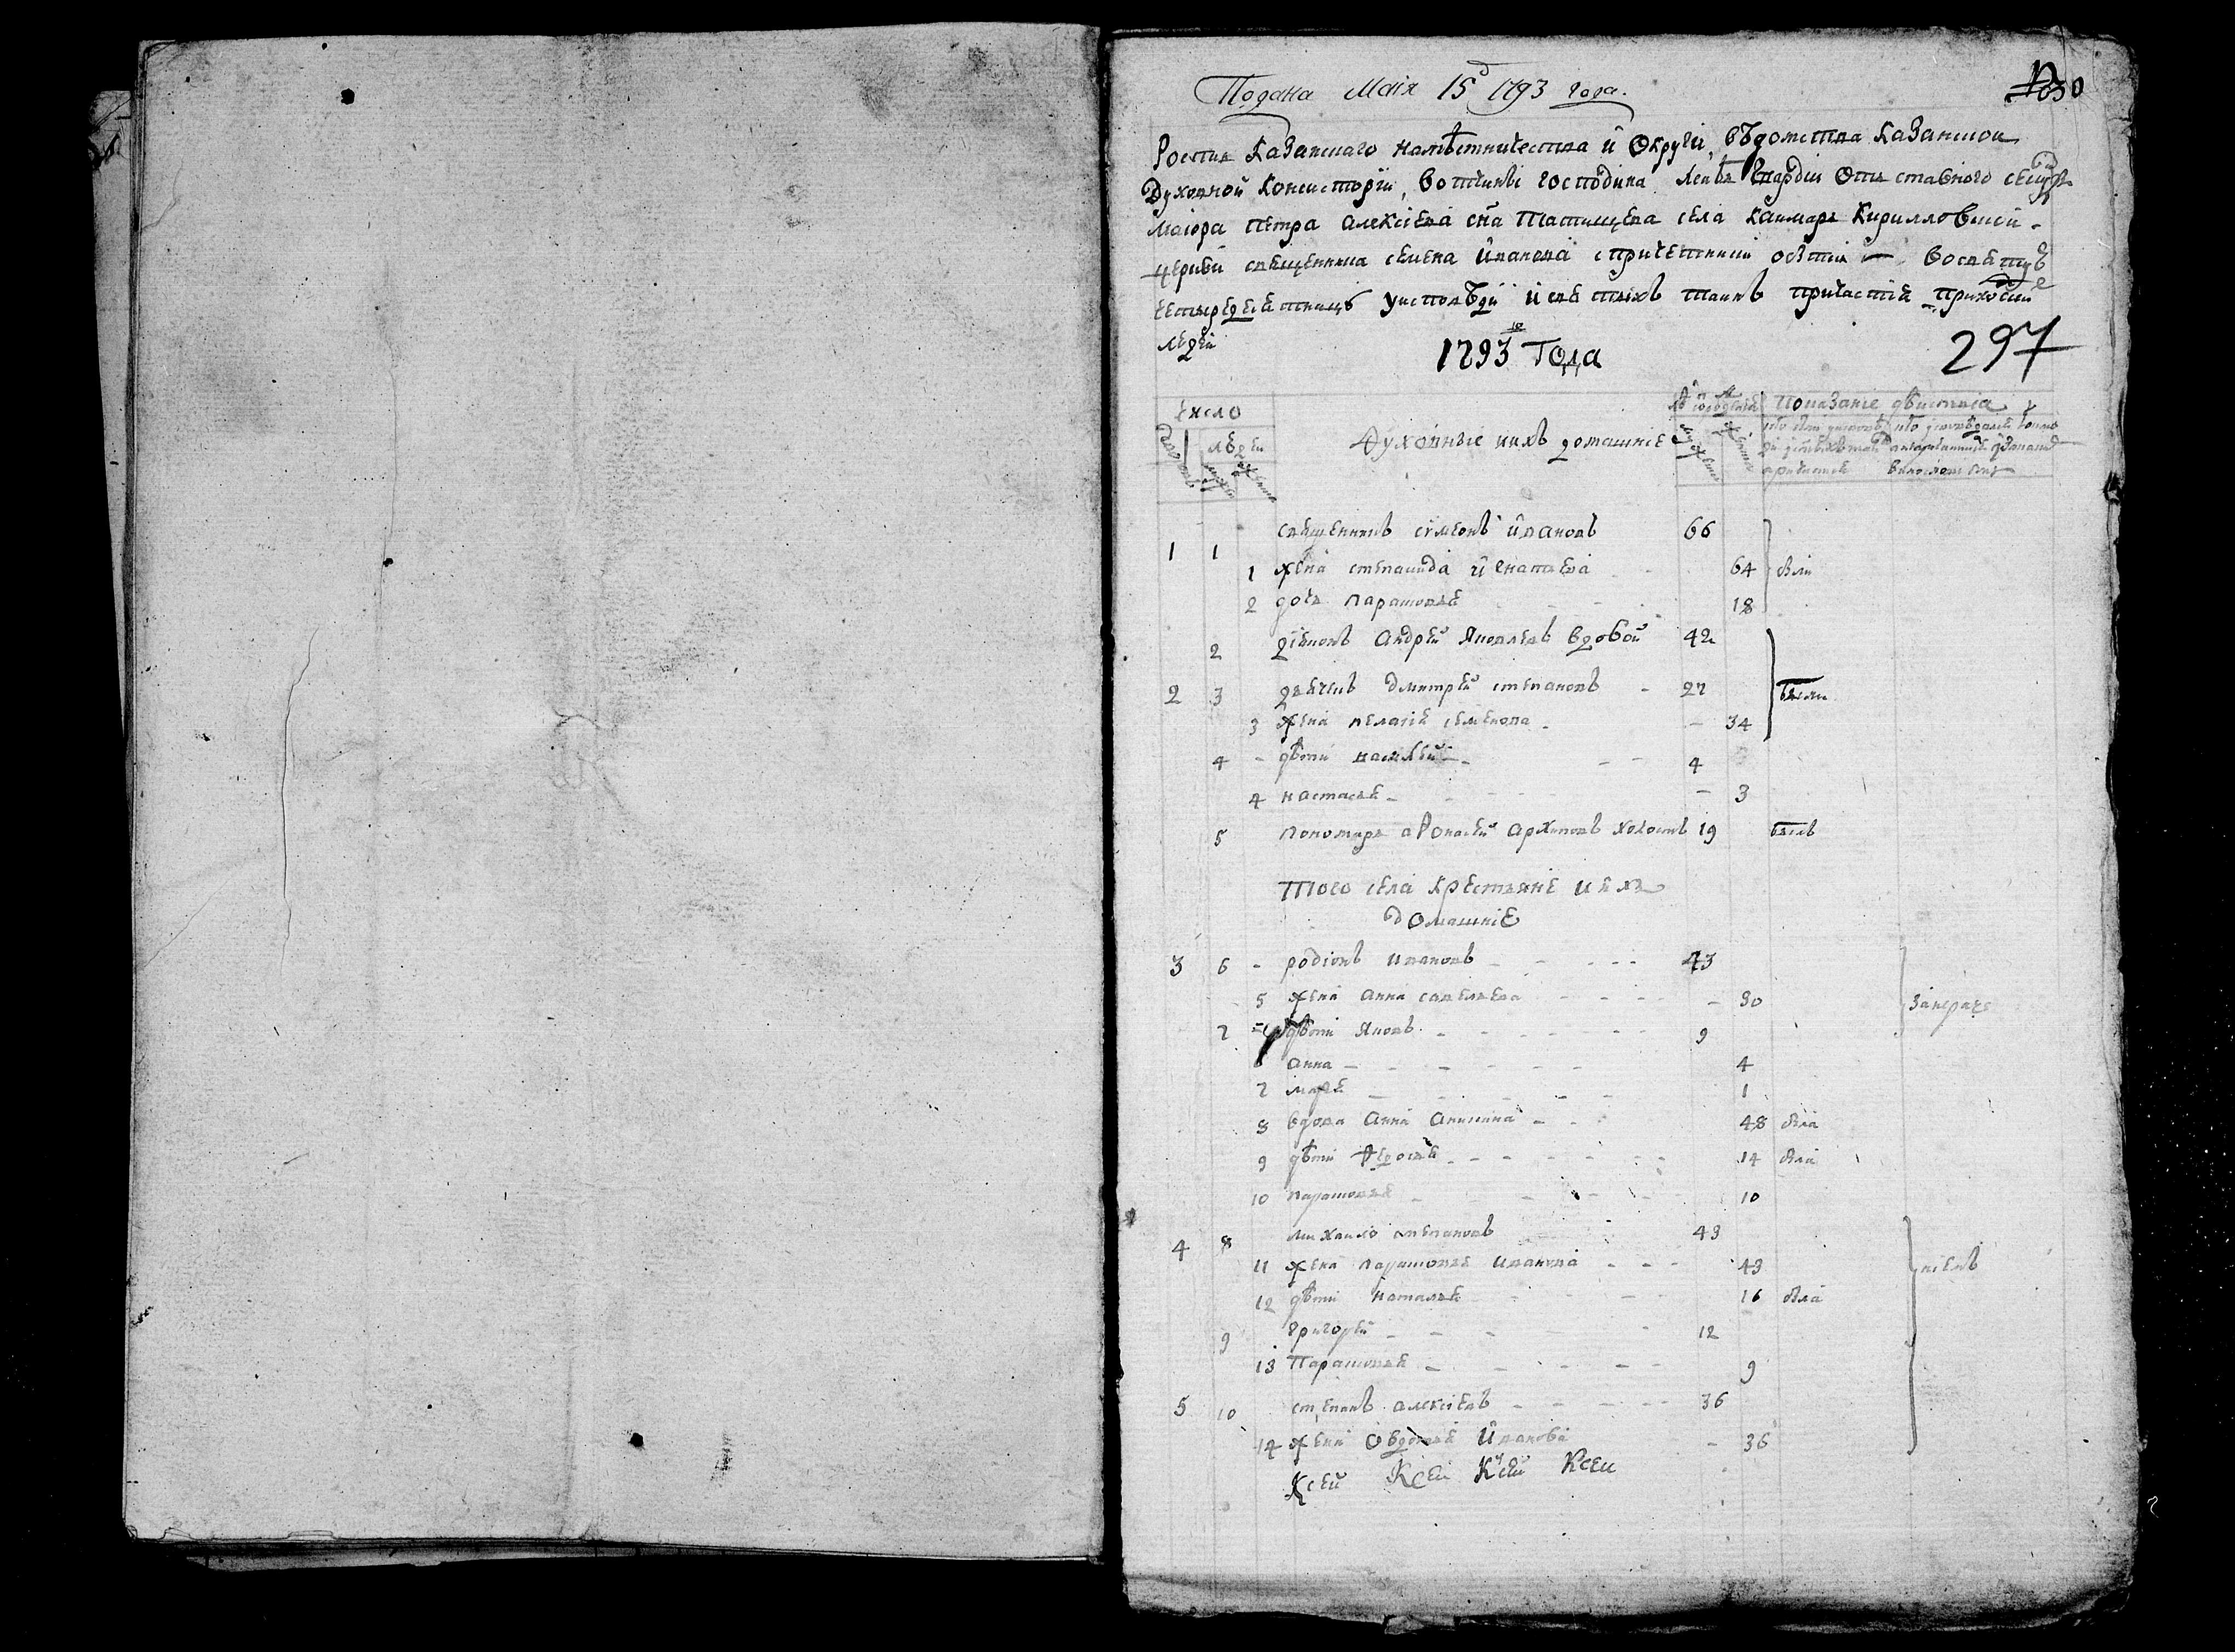 Подана Маія 15 1793 года.
30
Роспись Казанскаго наместничества и Округи, вѣдомства казанской
Духовной Консисторіи, вотчины господина Лейбъ гвардіи Отъ ставного секундъ
маіора петра алексѣева сна Татищева села каимаръ Кирилловской
церкви священника семена иванова спричетники
четыредесятницѣ уисповѣди и свѣтыхъ таинъ причастія приходскихъ
людей
1793 Года
297
Число
людей
Духовные иихъ домашніе
Показаніе дѣйства
1 1 священникъ сѵмеонъ ивановъ 66
1 жена степанида игнатьева 64 были
2 дочь парасковья 18
2 діаконъ Андрей Яковлевъ вдовой 42
2 3 дьячекъ дмитрей степановъ 27 были
3 жена пелагія семенова 34
4 дѣти василей 4
4 настасья 3
5 пономарь афонасей архиповъ холостъ 19 былъ
Того села крестьяне и ихъ
домашніе
3 6 родіонъ ивановъ 43
5 жена анна савельева 30
7 дѣти Яковъ 9
6 анна 4
7 марья 1
8 вдова Анна Аникина 48 была
9 дѣти Федосья 14 была
10 парасковья 10
4 8 михаило степановъ 43
11 жена парасковья иванова 43
12 дѣти наталья 16 была
9 григорей 12
13 Парасковья 9
5 10 степанъ алексѣевъ 36
14 жена овдотья иванова 36
Ксей Ксей Ксей Ксеи